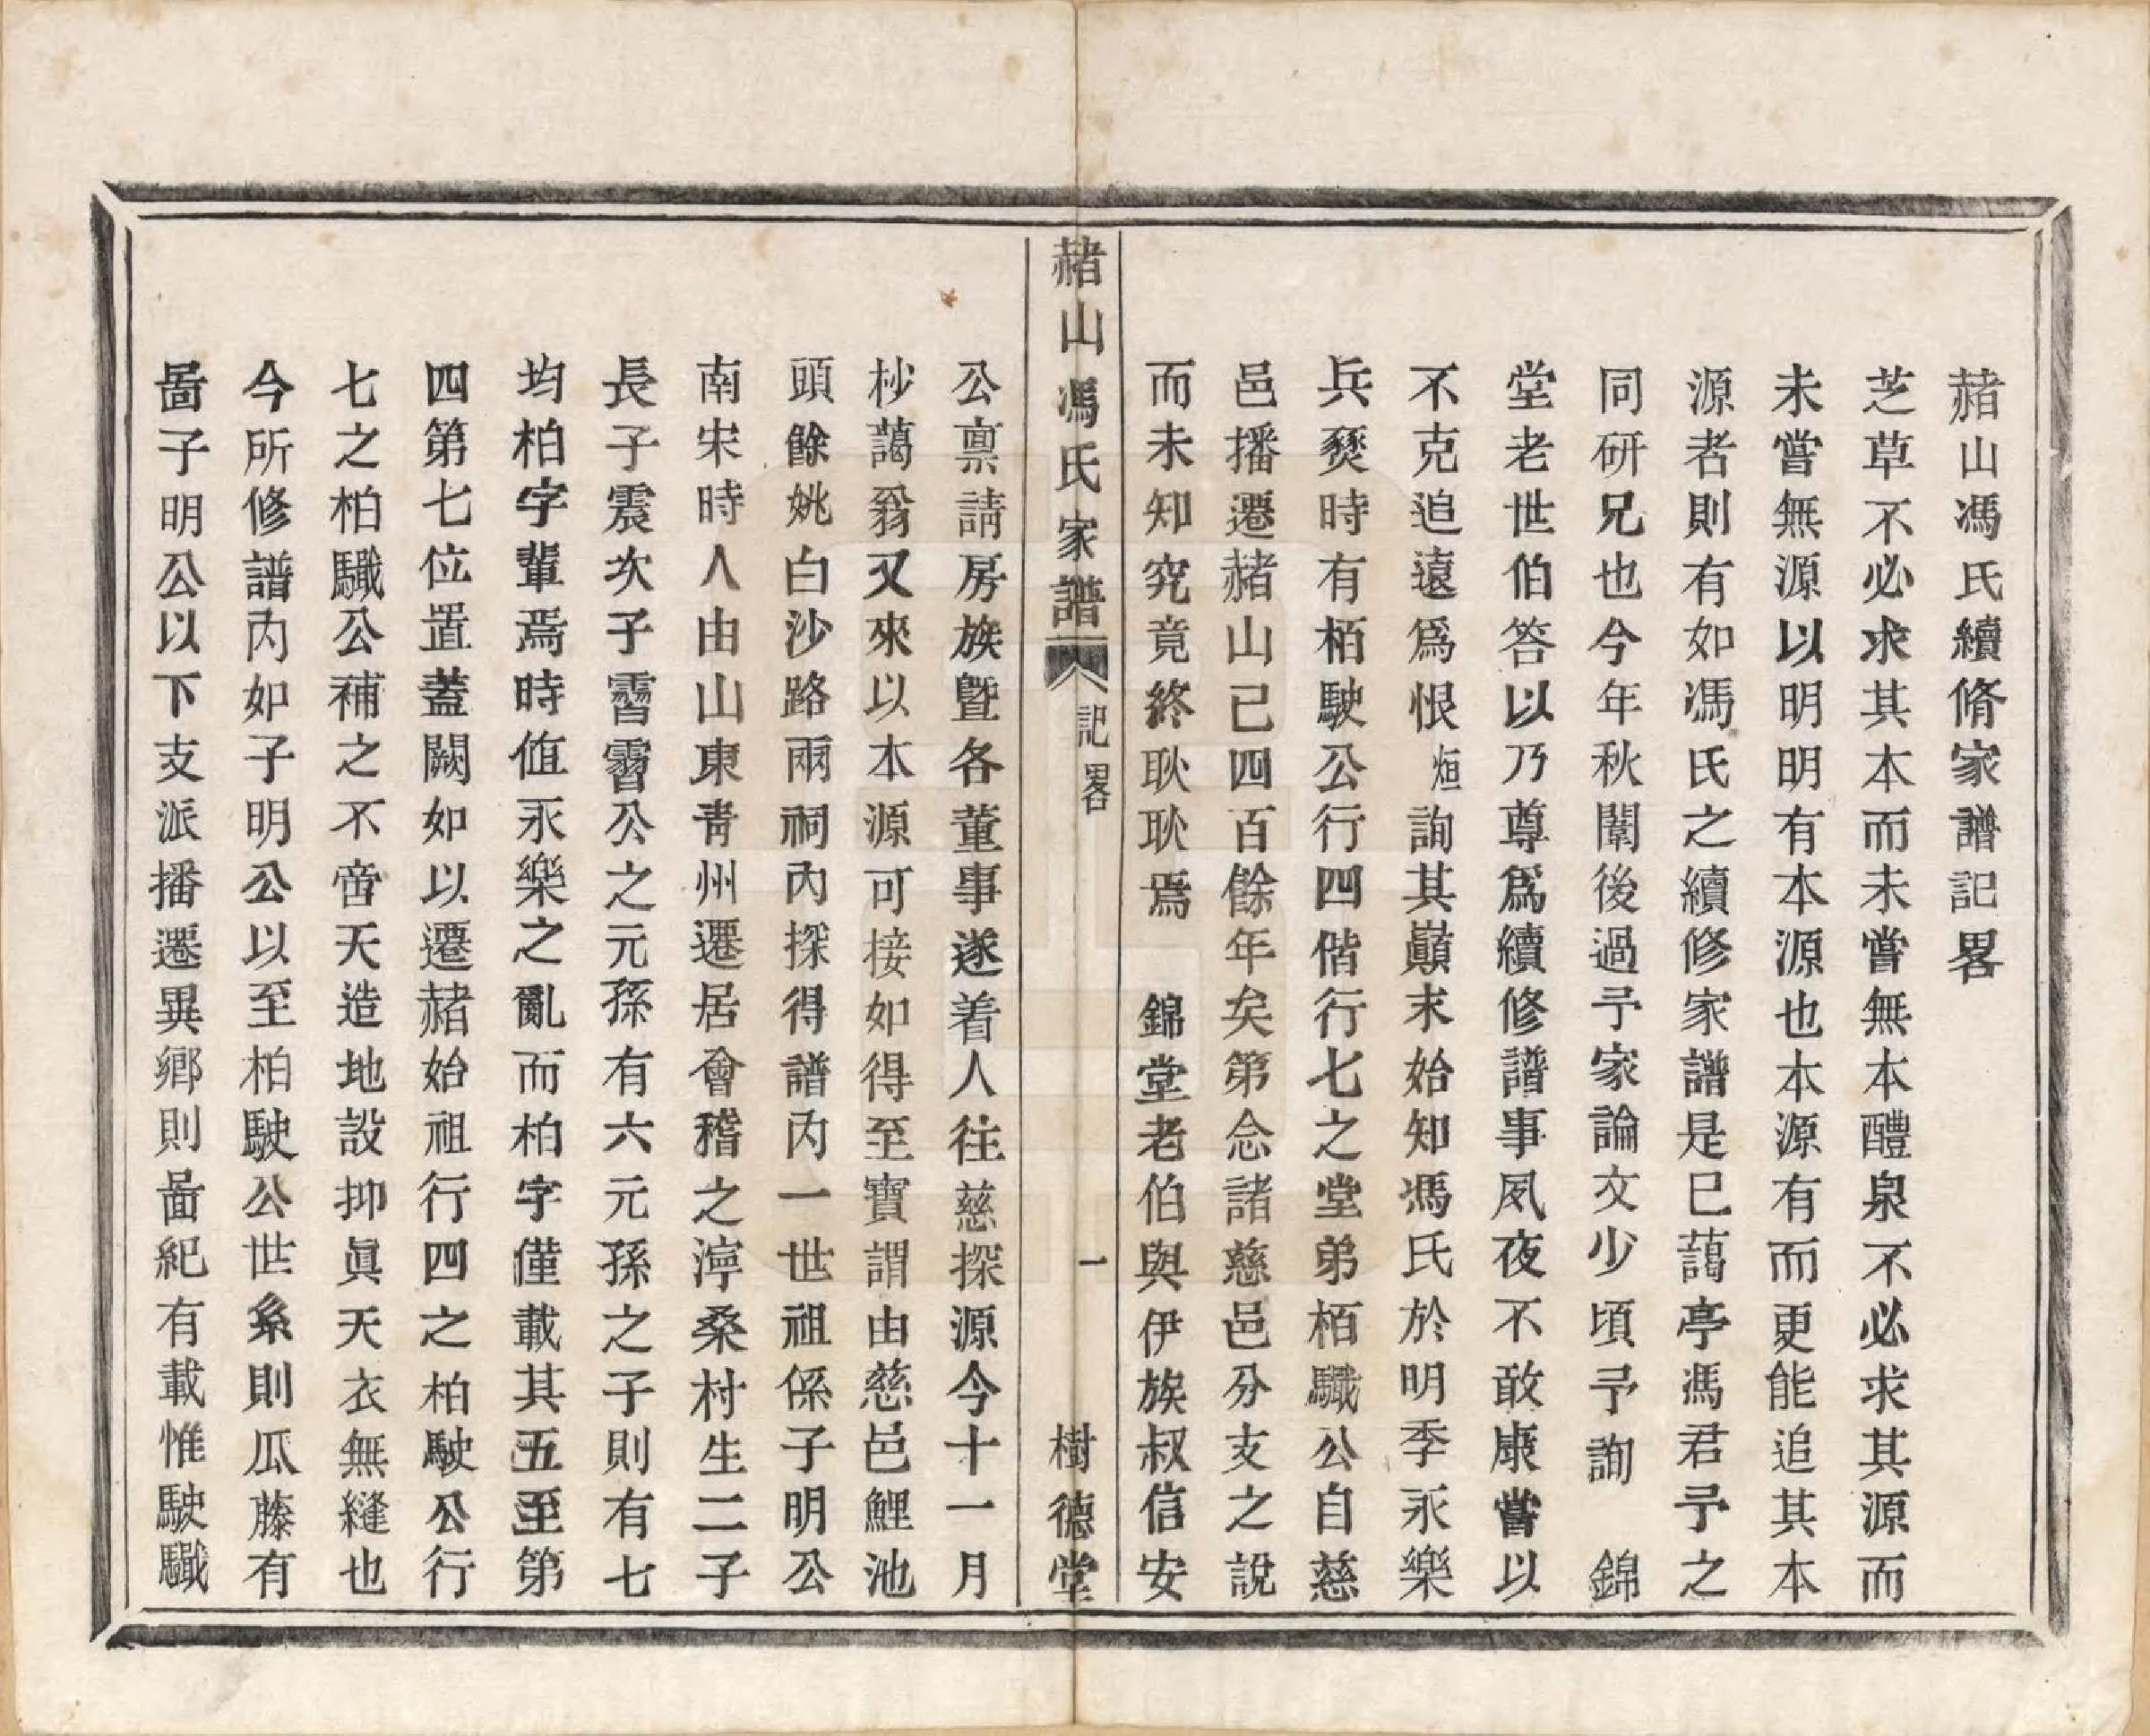 赭山馮氏續脩家譜記畧
芝草不必求其本而未嘗無本醴泉不必求其源而
未嘗無源以明明有本源也本源有而更能追其本
源者則有如馮氏之續修家譜是已藹亭馮君予之
同研兄也今年秋闈後過予家論文少頃予詢　錦
堂老世伯答以乃尊爲續修譜事夙夜不敢康嘗以
不克追遠爲恨烜詢其巔末始知馮氏於明季永樂
兵燹時有栢駛公行四偕行七之堂弟栢驖公自慈
邑播遷赭山已四百餘年矣第念諸慈邑分支之說
而未知究竟終耿耿焉　錦堂老伯與伊族叔信安
赭山馮氏家譜　記畧　一　樹德堂
公禀請房族曁各董事遂着人往慈探源今十一月
杪藹翁又來以本源可接如得至寶謂由慈邑鯉池
頭餘姚白沙路兩祠內探得譜內一世祖係子明公
南宋時人由山東靑州遷居會稽之渟桑村生二子
長子震次子霅霅公之元孫有六元孫之子則有七
均柏字輩焉時値永樂之亂而柏字僅載其五至第
四第七位置蓋闕如以遷赭始祖行四之柏駛公行
七之柏驖公補之不啻天造地設抑眞天衣無縫也
今所修譜內如子明公以至柏駛公世系則瓜藤有
啚子明公以下支派播遷異鄉則啚紀有載惟駛驖